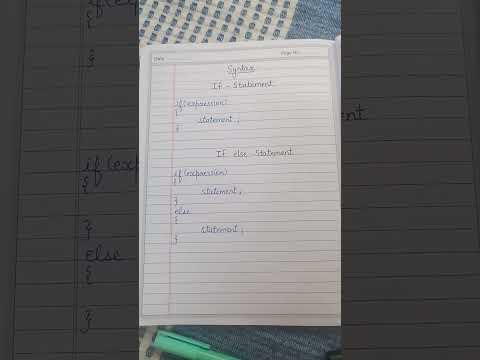 Date
Page No.
Syntax
If - Statement
if(expression)
{
statement;
}
If else Statement
if(expression)
{
statement;
}
else
{
statement;
}